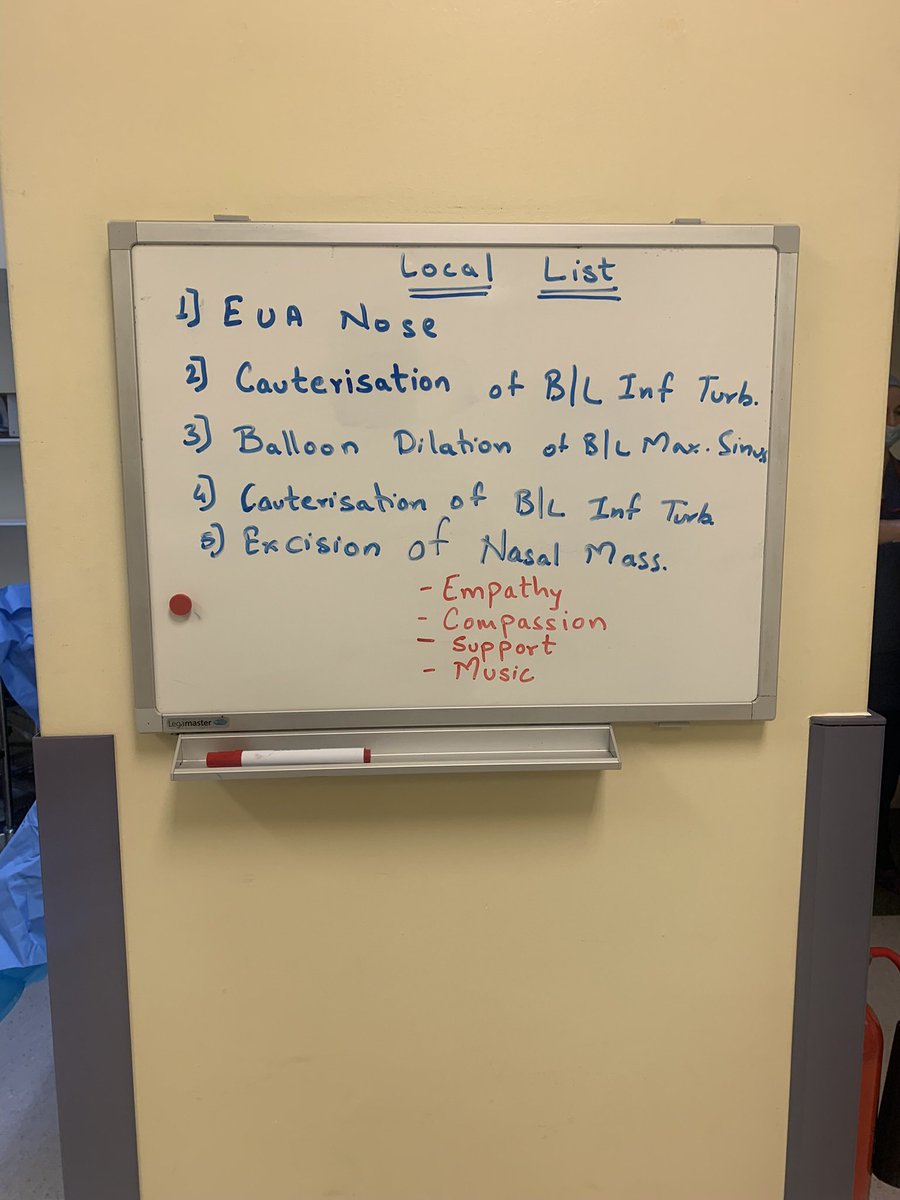 Local List
1] EUA Nose
2] Cauterisation of B/L Inf Turb.
3] Balloon Dilation of B/L Max. Sinus
4] Cauterisation of B/L Inf Turb.
5] Excision of Nasal Mass.
- Empathy
- Compassion
- Support
- Music
Legamaster